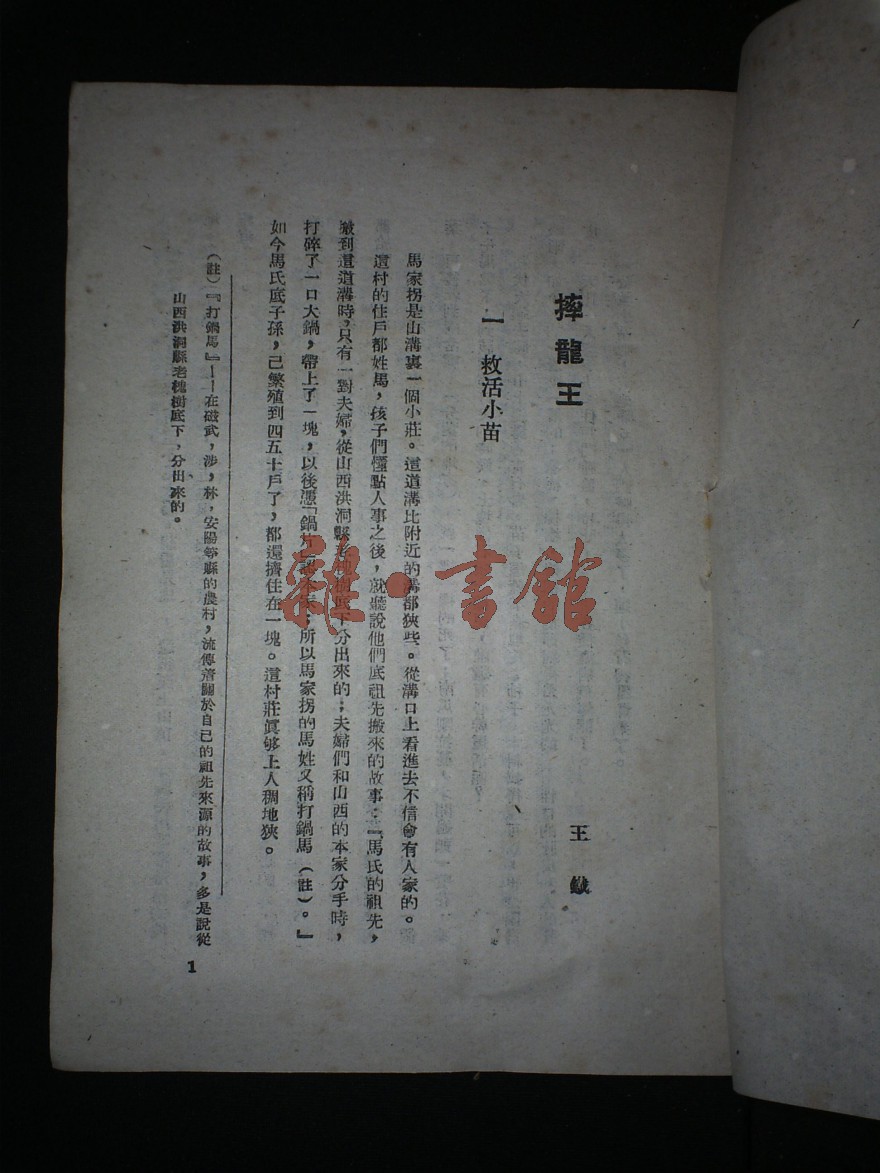 摔龍王
王
一 救活小苗
馬家拐是山溝裏一個小莊。這道溝比附近的溝都狹些。從溝口上看進去不信會有人家的。
這村的住戶都姓馬，孩子們懂點人事之後，就聽說他們底祖先搬來的故事：『馬氏的祖先，
搬到這道溝時，只有一對夫婦，從山西洪洞縣老槐樹底下分出來的；夫婦們和山西的本家分手時，
打碎了一口大鍋，帶上了一塊，以後憑「鍋片」認本家；所以馬家拐的馬姓又稱打鍋馬（註）。』
如今馬氏底子孫，已繁殖到四五十戶了，都還擠住在一塊。這村莊眞够上人稠地狹。
（註）『打鍋馬』——在磁武，涉，林，安陽等縣的農村，流傳着關於自己的祖先來源的故事，多是說從
山西洪洞縣老槐樹底下，分出來的。
1
雜·書館